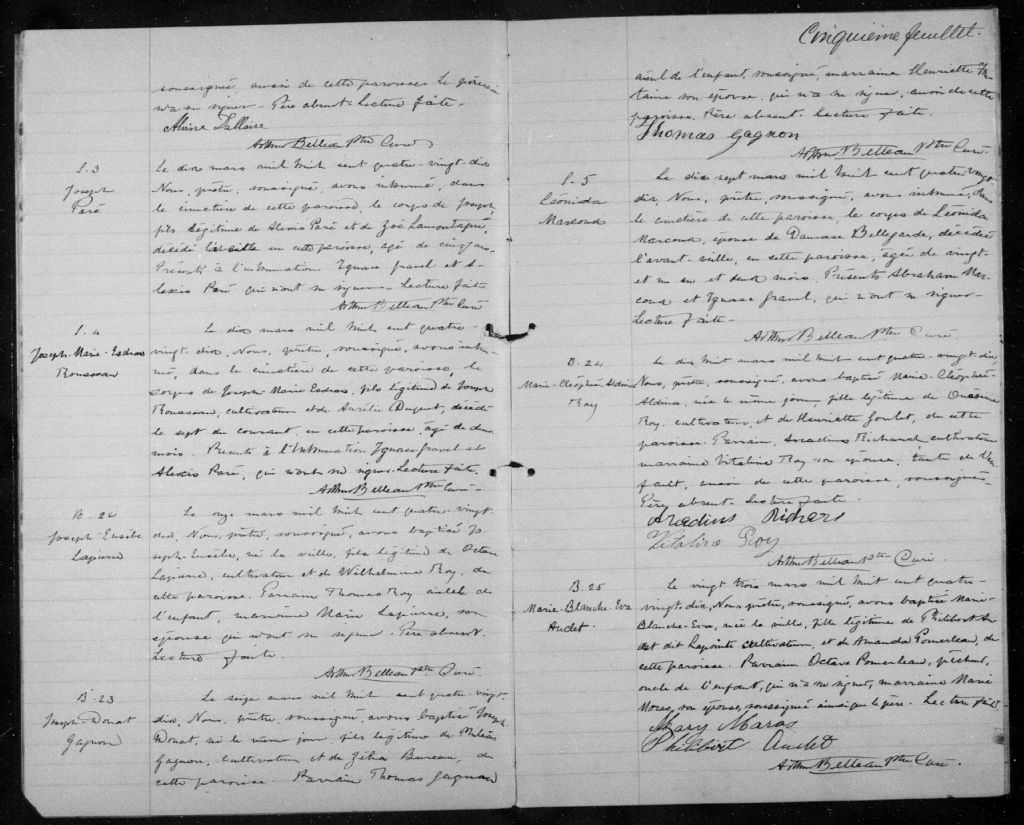 soussigné, aussi de cette paroisse. Le parrain
n'a su signer. Père absent. Lecture faite.
Alvine Dallaire
Arthur Belleau Ptre Curé
S. 3
Joseph
Paré
Le dix mars mil huit cent quatre-vingt-dix
Nous, prêtre, soussigné, avons inhumé, dans
le cimetière de cette paroisse, le corps de Joseph,
fils légitime de Alexis Paré et de Zoé Lamontagne,
décédé la veille en cette paroisse, agé de cinq ans.
Présents à l'inhumation Ignace Gravel et A-
lexis Paré qui n'ont su signer. Lecture faite
Arthur Belleau Ptre Curé
S. 4
Joseph-Marie-Esdras
Rousseau
Le dix mars mil huit cent quatre-
vingt-dix, Nous, prêtre, soussigné, avons inhu-
mé, dans le cimetière de cette paroisse, le
corps de Joseph Marie Esdras, fils légitime de Joseph
Rousseau, cultivateur et de Aurélie Duquet, décédé
le sept du courant, en cette paroisse, agé de deux
mois. Présents à l'inhumation Ignace Gravel et
Alexis Paré, qui n'ont su signer. Lecture faite.
Arthur Belleau Ptre Curé
B. 22
Joseph-Eusèbe
Lapierre
Le onze mars mil huit cent quatre-vingt
dix, Nous, prêtre, soussigné, avons baptisé Jo
seph-Eusèbe, né la veille, fils légitime de Octave
Lapierre, cultivateur et de Wilhelmine Roy, de
cette paroisse. Parrain Thomas Roy aieul de
l'enfant, marraine Marie Lapierre, son
épouse qui n'ont su signer. Père absent.
Lecture faite.
Arthur Belleau Ptre Curé.
B. 23
Joseph-Donat
Gagnon
Le seize mars mil huit cent quatre-vingt-
dix, Nous, prêtre, soussigné, avons baptisé Joseph
Donat, né le même jour, fils légitime de Philéas
Gagnon, cultivateur et de Zélia Bureau, de
cette paroisse. Parrain Thomas Gagnon
Cinquième feuillet.
aieul de l'enfant, soussigné, marraine Henriette Fon
taine son épouse, qui n'a su signer, aussi de cette
paroisse. Père absent. Lecture faite.
Thomas Gagnon
Arthur Belleau Ptre Curé.
S. 5
Léonida
Marcoux
Le dix sept mars mil huit cent quatre vingt
dix, Nous, prêtre, soussigné, avons inhumé, dans
le cimetière de cette paroisse, le corps de Léonida
Marcoux, épouse de Damase Bellegarde, décédée
l'avant-veille, en cette paroisse, agée de vingt-
et un an et deux mois. Présents Abraham Mar-
coux et Ignace Gravel, qui n'ont su signer.
Lecture faite.
Arthur Belleau Ptre Curé.
B. 24
Marie-Cléophée Aldina
Roy
Le dix huit mars mil huit cent quatre-vingt-dix
Nous, prêtre, soussigné, avons baptisé Marie-Cléophée
Aldina, née le même jour, fille légitime de Onésime
Roy, cultivateur, et de Henriette Goulet, de cette
paroisse. Parrain, Arcadius Richard cultivateur
marraine Vitaline Roy son épouse, tante de l'en
fant, aussi de cette paroisse, soussignés.
Père absent. Lecture faite.
Arcadius Richard
Vitaline Roy
Arthur Belleau Ptre Curé.
B. 25
Marie-Blanche-Eva
Audet.
Le vingt trois mars mil huit cent quatre-
vingt-dix, Nous prêtre, soussigné, avons baptisé Marie-
Blanche-Eva, née la veille, fille légitime de Philibert Au
det dit Lapointe cultivateur, et de Amanda Pomerleau, de
cette paroisse. Parrain Octave Pomerleau,
oncle de l'enfant, qui n'a su signer, marraine Marie
Moras, son épouse, soussignée ainsi que le père. Lecture faite.
Mary Maras
Philibert Audet
Arthur Belleau Ptre Curé.